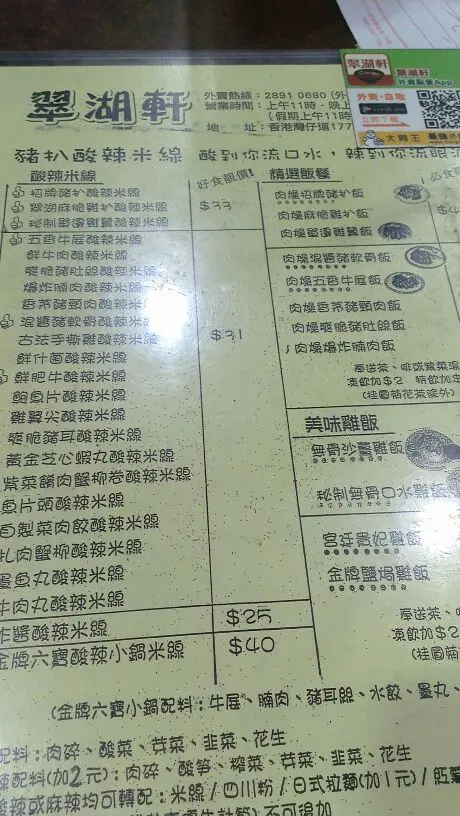 翠湖軒
外賣熱線：2891 0680
營業時間：上午11時 - 晚上
(假期上午11時
地　址：香港灣仔道177
翠湖軒
翠湖軒
外賣點餐App
外賣‧自取
立即下載
大胃王
豬扒酸辣米線　酸到你流口水，辣到你流眼淚
酸辣米線
好食限價!
招牌豬扒酸辣米線
翠湖麻脆雞扒酸辣米線
秘制單邊雞翼酸辣米線
$33
五香牛展酸辣米線
鮮牛肉酸辣米線
爽脆豬肚絲酸辣米線
爆炸腩肉酸辣米線
香茅豬頸肉酸辣米線
混醬豬軟骨酸辣米線
古法手撕雞酸辣米線
$31
鮮什菌酸辣米線
鮮肥牛酸辣米線
鮑魚片酸辣米線
雞翼尖酸辣米線
爽脆豬耳酸辣米線
黃金芝心蝦丸酸辣米線
紫菜餚肉蟹柳卷酸辣米線
魚片頭酸辣米線
自製菜肉餃酸辣米線
扎肉蟹柳酸辣米線
墨魚丸酸辣米線
牛肉丸酸辣米線
炸醬酸辣米線
$25
金牌六寶酸辣小鍋米線
$40
精選飯餐
必食
肉燥招牌豬扒飯
肉燥麻脆雞扒飯
肉燥單邊雞翼飯
肉燥混醬豬軟骨飯
肉燥五香牛展飯
肉燥香茅豬頸肉飯
肉燥爽脆豬肚絲飯
肉燥爆炸腩肉飯
奉送茶、啡或紫菜湯
凍飲加$2　特飲加$
(桂圓菊花茶除外)
美味雞飯
無骨沙薑雞飯
秘制無骨口水雞飯
宮廷貴妃雞飯
金牌鹽焗雞飯
奉送茶、
凍飲加$2
(桂圓菊
(金牌六寶小鍋配料：牛展、腩肉、豬耳絲、水餃、墨丸、
配料：肉碎、酸菜、芽菜、韭菜、花生
辣配料(加2元)：肉碎、酸筍、榨菜、芽菜、韭菜、花生
酸辣或麻辣均可轉配：米線/四川粉/日式拉麵(加1元)/
不可現加